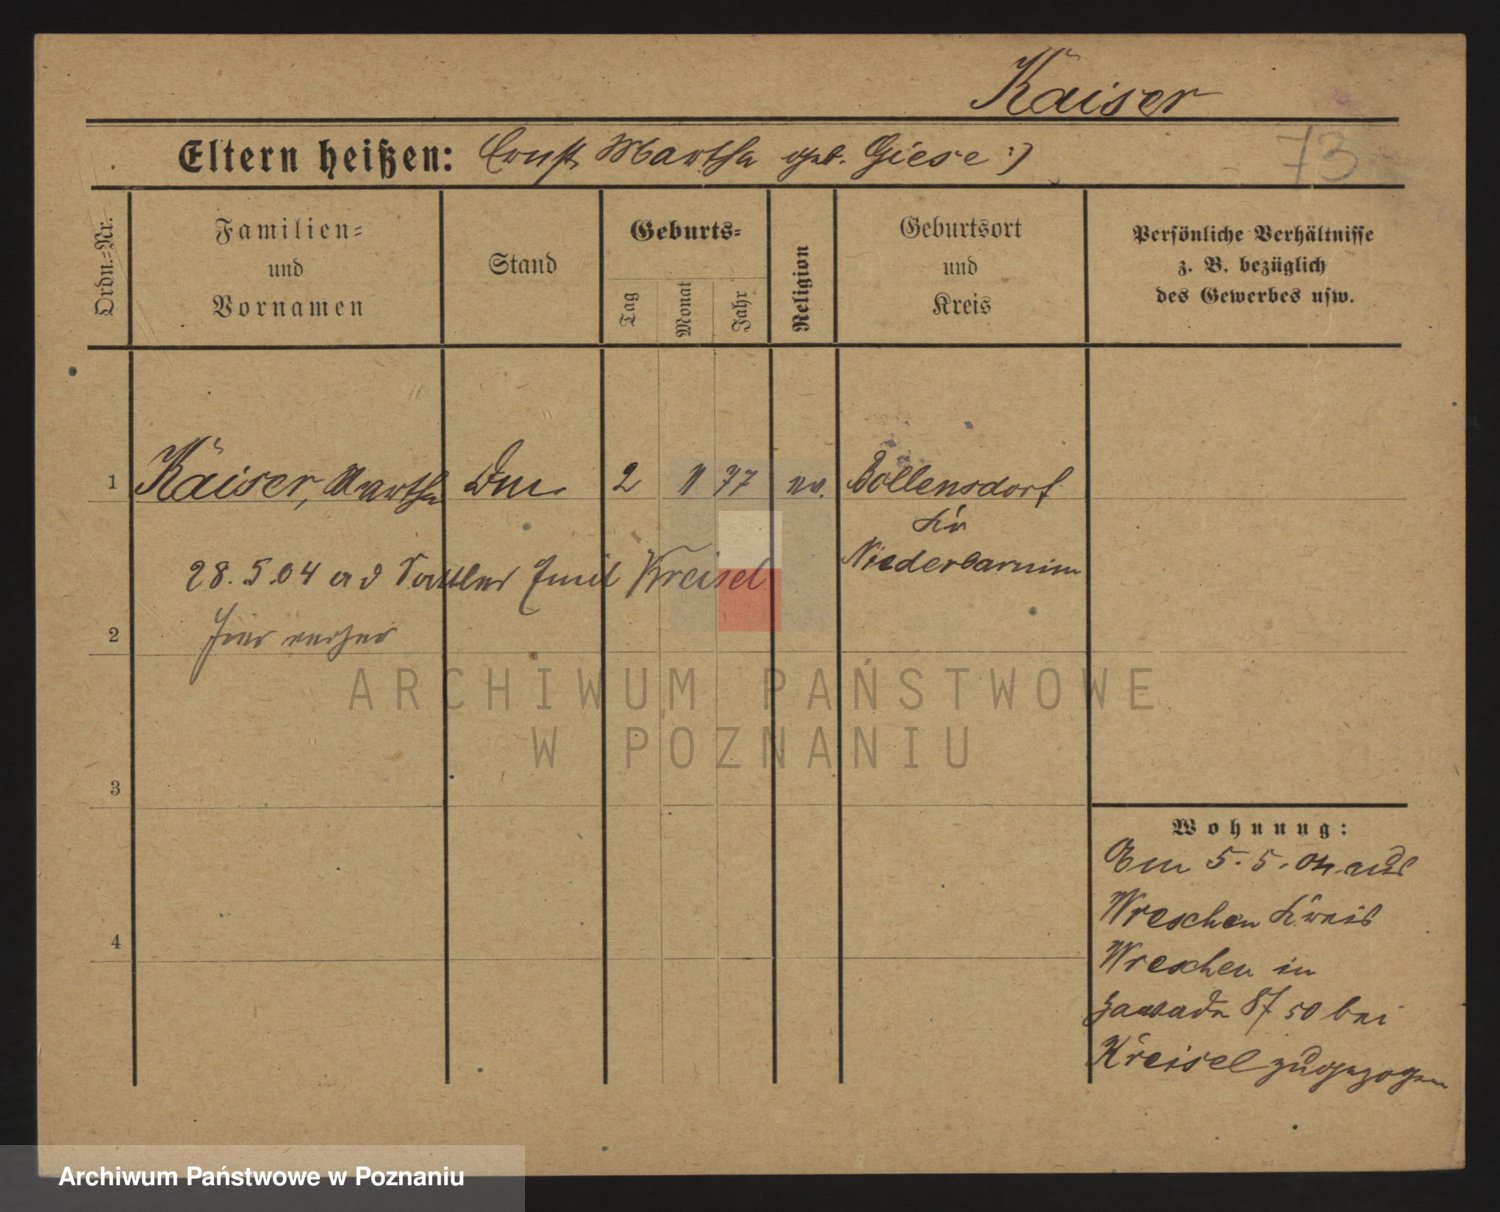 Kaiser
Eltern heißen: Ernst Martha geb. Giese :)
73
Ordn.=Nr.
Familien=
und
Vornamen
Stand
Geburts=
Tag
Monat
Jahr
Religion
Geburtsort
und
Kreis
Persönliche Verhältnisse
z. B. bezüglich
des Gewerbes usw.
1 Kaiser, Martha 2 77 ev. Bollensdorf
Kr
Niederbarnim
28.5.04 Sattler Emil Kreisel
2 hier
3
4
Wohnung:
5.5.04 aus
Wreschen Kreis
Wreschen in
Zawade 50 bei
Kreisel zugezogen
ARCHIWUM PAŃSTWOWE
W POZNANIU
Archiwum Państwowe w Poznaniu